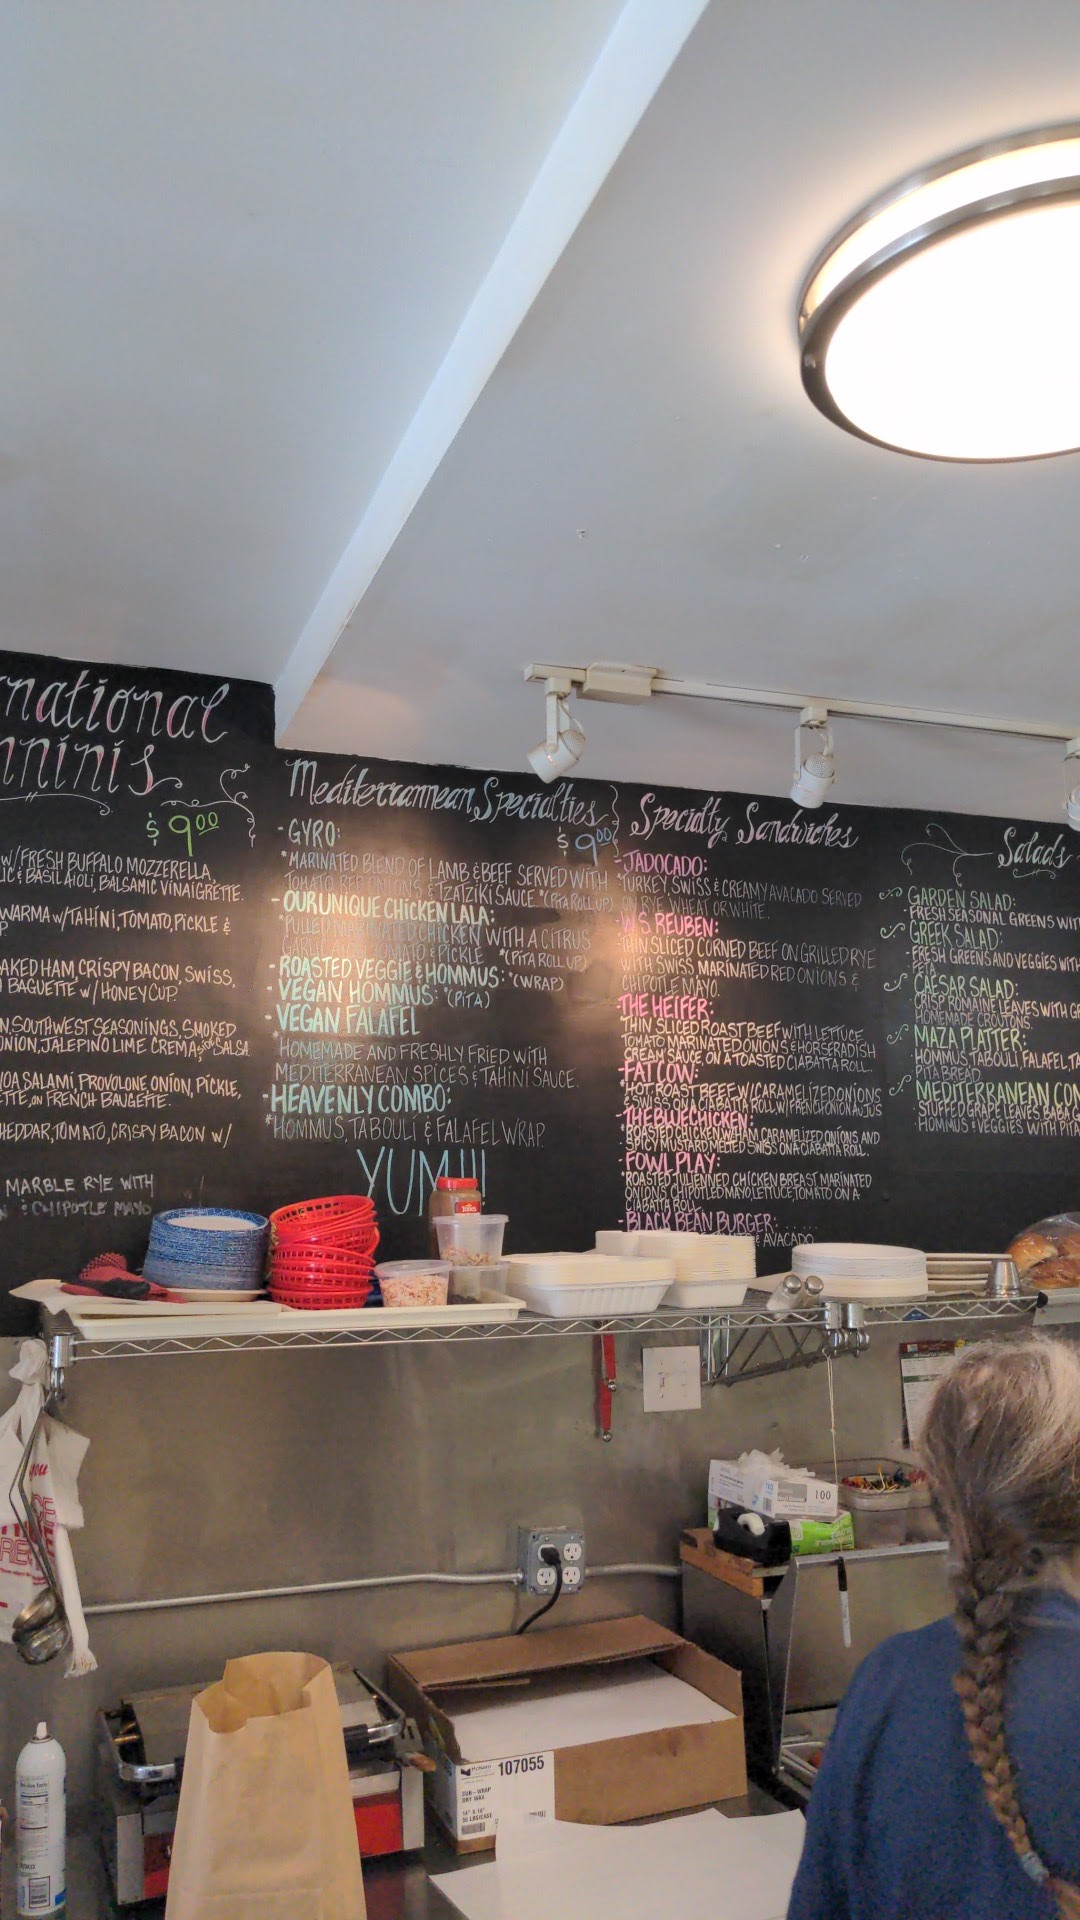 national
ninis
$9.00
W/FRESH BUFFALO MOZZERELLA,
& BASIL AIOLI, BALSAMIC VINAIGRETTE.
WARMA W/TAHINI, TOMATO, PICKLE &
AKED HAM, CRISPY BACON, SWISS,
BAGUETTE W/ HONEYCUP.
SOUTHWEST SEASONINGS, SMOKED
ONION, JALEPINO LIME CREMA SIDE SALSA
OA SALAMI, PROVOLONE ONION, PICKLE,
ETTE, ON FRENCH BAUGETTE.
HEDDAR, TOMATO, CRISPY BACON W/
MARBLE RYE WITH
& CHIPOTLE MAYO
Mediterrannean Specialties
$9.00
- GYRO:
*MARINATED BLEND OF LAMB & BEEF SERVED WITH
TOMATO RED ONIONS & TZATZIKI SAUCE. *(PITA ROLL UP)
- OUR UNIQUE CHICKEN LALA:
*PULLED MARINATED CHICKEN WITH A CITRUS
GARLIC TOMATO & PICKLE *(PITA ROLL UP)
- ROASTED VEGGIE & HOMMUS: *(WRAP)
- VEGAN HOMMUS: *(PITA)
- VEGAN FALAFEL
*HOMEMADE AND FRESHLY FRIED WITH
MEDITERRANEAN SPICES & TAHINI SAUCE.
- HEAVENLY COMBO:
*HOMMUS, TABOULI & FALAFEL WRAP.
YUM!!!
Specialty Sandwiches
- JADOCADO:
*TURKEY, SWISS & CREAMY AVACADO SERVED
ON RYE WHEAT OR WHITE.
REUBEN:
THIN SLICED CORNED BEEF ON GRILLED RYE
WITH SWISS MARINATED RED ONIONS &
CHIPOTLE MAYO.
THE HEIFER:
THIN SLICED ROAST BEEF WITH LETTUCE
TOMATO MARINATED ONIONS & HORSERADISH
CREAM SAUCE, ON A TOASTED CIABATTA ROLL.
- FAT COW:
*HOT ROAST BEEF W/CARAMELIZED ONIONS
& SWISS ON A CIABATTA ROLL W/ FRENCH ONION AU JUS
- THE BLUE CHICKEN:
*ROASTED CHICKEN W/HAM, CARAMELIZED ONIONS AND
SPICY MUSTARD, MELTED SWISS ON A CIABATTA ROLL.
- FOWL PLAY:
*ROASTED JULIENNED CHICKEN BREAST MARINATED
ONIONS CHIPOTLE MAYO, LETTUCE, TOMATO ON A
CIABATTA ROLL.
- BLACK BEAN BURGER:
& AVACADO
Salads
GARDEN SALAD:
- FRESH SEASONAL GREENS WIT
GREEK SALAD:
- FRESH GREENS AND VEGGIES WITH
FETA
CAESAR SALAD:
CRISP ROMAINE LEAVES WITH
HOMEMADE CROUTONS.
MAZA PLATTER:
HOMMUS, TABOULI, FALAFEL, TA
PITA BREAD.
MEDITERRANEAN COM
- STUFFED GRAPE LEAVES, BABA G
HOMMUS & VEGGIES WITH PITA
100
107055
SUB-WRAP
DRY WAX
14" X 16"